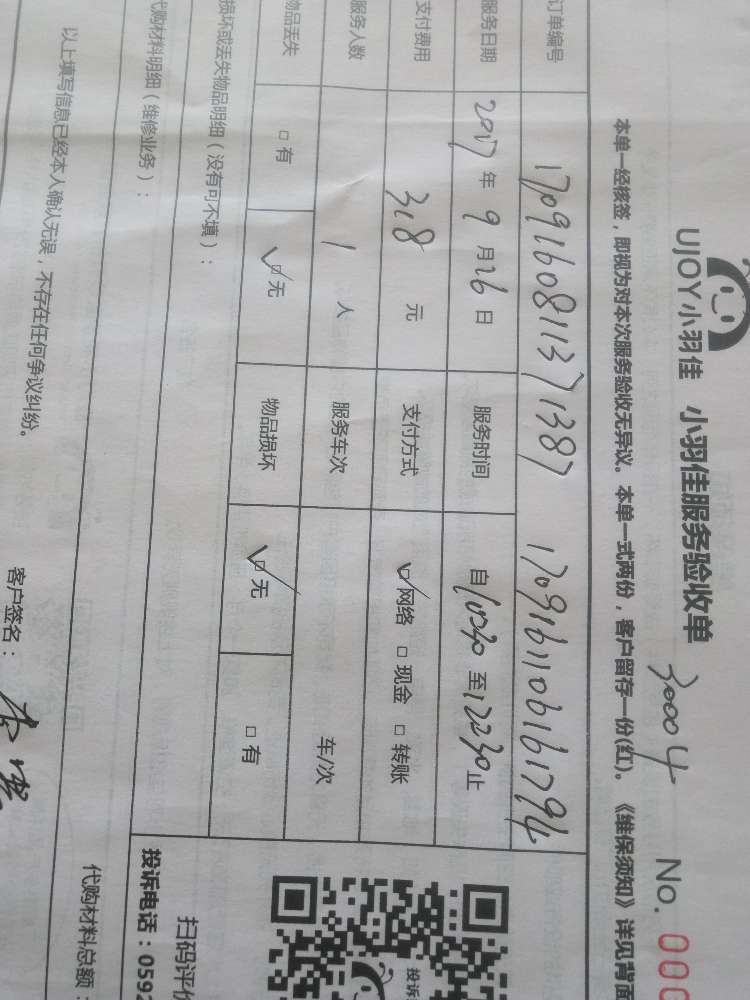 UJOY小羽佳 小羽佳服务验收单 30004 No. 000
本单一经核签，即视为对本次服务验收无异议。本单一式两份，客户留存一份(红)。《维保须知》详见背面
订单编号 1709160811371387 1709161106161794
服务日期 2017年9月26日 服务时间 自10:30至12:30止
支付费用 318元 支付方式 网络 现金 转账
服务人数 1人 服务车次 车/次
物品丢失 有 无 物品损坏 无 有
损坏或丢失物品明细（没有可不填）：
代购材料明细（维修业务）：
扫码评价
投诉电话：0592
代购材料总额：
以上填写信息已经本人确认无误，不存在任何争议纠纷。
客户签名：